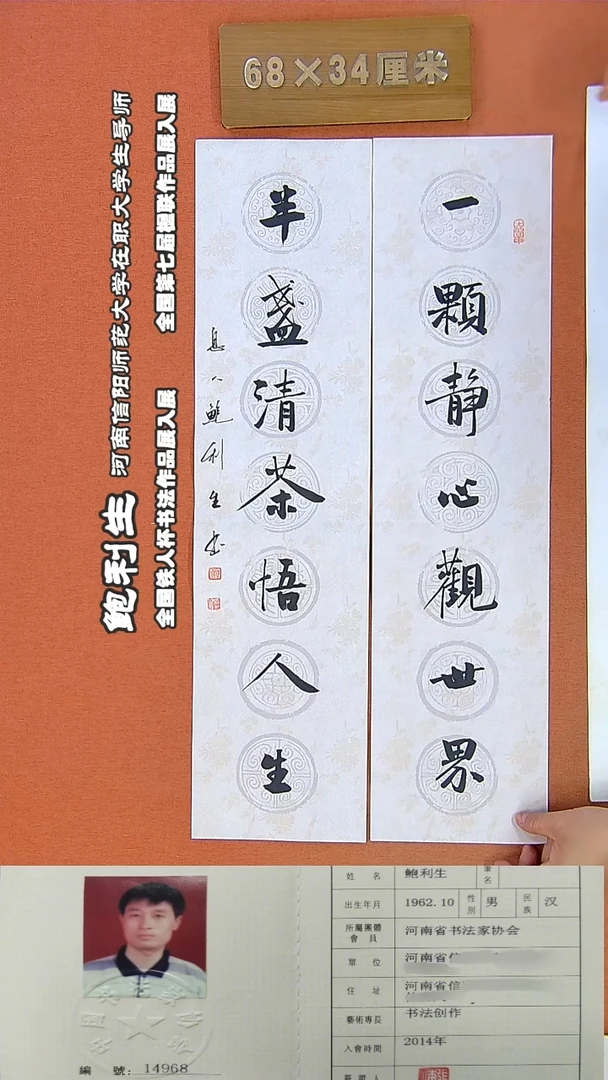 68×34厘米
一顆静心觀世界
半盞清茶悟人生
息人鲍利生书
鲍利生 河南信阳师范大学在职大学生导师
全国铁人杯书法作品展入展 全国第七届楹联作品展入展
姓名 鲍利生 筆名
出生年月 1962.10 性別 男 民族 汉
所屬團體會員 河南省书法家协会
單位 河南省信
住址 河南省信
藝術專長 书法创作
入會時間 2014年
簽證人
編號: 14968